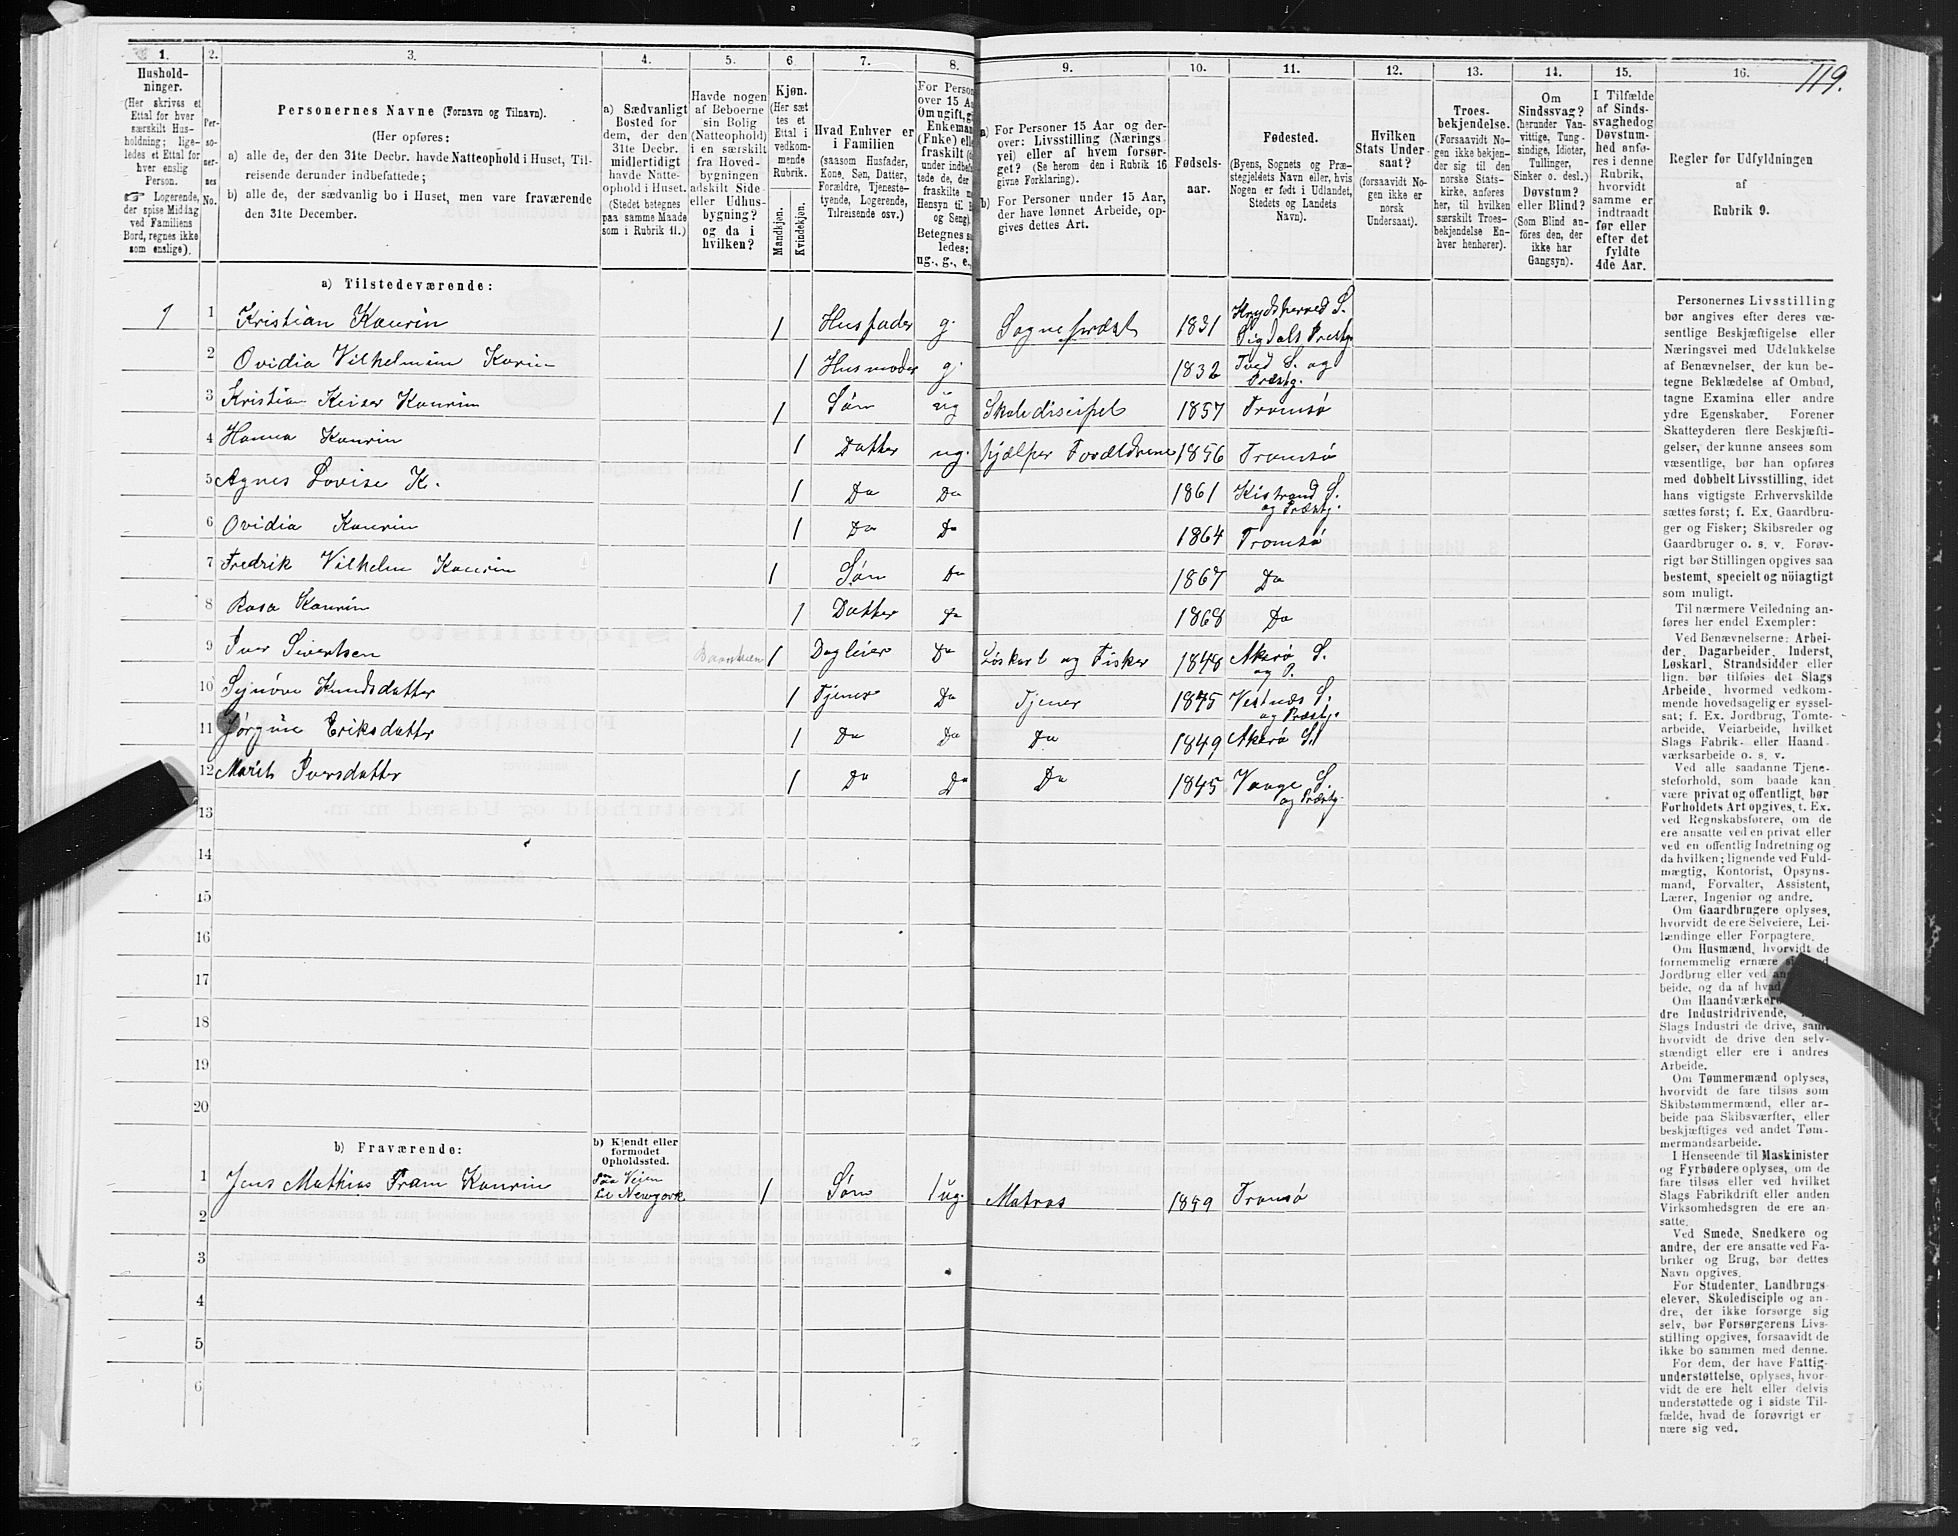 119.
1.
Hushold-
ninger.
(Her skrives et
Ettal for hver
særskilt Hus-
holdning; lige-
ledes et Ettal for
hver enslig
Person.
☞ Logerende,
der spise Middag
ved Familiens
Bord, regnes ikke
som enslige).
2.
Per-
so-
ner-
nes
No.
3.
Personernes Navne (Fornavn og Tilnavn).
(Her opføres:
a) alle de, der den 31te Decbr. havde Natteophold i Huset, Til-
reisende derunder indbefattede;
b) alle de, der sædvanlig bo i Huset, men vare fraværende
den 31te December.
4.
a) Sædvanligt
Bosted for
dem, der den
31te Decbr.
midlertidigt
havde Natte-
ophold i Huset.
(Stedet betegnes
paa samme Maade
som i Rubrik 11.)
5.
Havde nogen
af Beboerne
sin Bolig
(Natteophold)
i en særskilt
fra Hoved-
bygningen
adskilt Side-
eller Udhus-
bygning?
og da i
hvilken?
6.
Kjøn.
(Her sæt-
tes et
Ettal i
vedkom-
mende
Rubrik.
Mandkjøn.
Kvindekjøn.
7.
Hvad Enhver er
i Familien
(saasom Husfader,
Kone, Søn, Datter,
Forældre, Tjeneste-
tyende, Logerende,
Tilreisende osv.)
8.
For Person
over 15 Aa
Om ugift, g
Enkeman
(Enke) elle
fraskilt
under indbe
tede de, de
fraskilte
Hensyn til B
og Seng)
Betegnes s
ledes:
ug., g., e.,
9.
a) For Personer 15 Aar og der-
over: Livsstilling (Nærings-
vei) eller af hvem forsør-
get? (Se herom den i Rubrik 16
givne Forklaring).
b) For Personer under 15 Aar,
der have lønnet Arbeide, op-
gives dettes Art.
10.
Fødsels-
aar.
11.
Fødested.
(Byens, Sognets og Præ-
stegjeldets Navn eller, hvis
Nogen er født i Udlandet,
Stedets og Landets
Navn).
12.
Hvilken
Stats Under-
saat?
(forsaavidt No-
gen ikke er
norsk
Undersaat).
13.
Troes-
bekjendelse.
(Forsaavidt No-
gen ikke bekjen-
der sig til den
norske Stats-
kirke, anføres
her, til hvilken
særskilt Troes-
bekjendelse En-
hver henhører).
14.
Om
Sindssvag?
(herunder Van-
vittige, Tung-
sindige, Idioter,
Tullinger,
Sinker o. desl.)
Døvstum?
eller Blind?
(Som Blind an-
føres den, der
ikke har
Gangsyn).
15.
I Tilfælde
af Sinds-
svaghed og
Døvstum-
hed anfø-
res i denne
Rubrik,
hvorvidt
samme er
indtraadt
før eller
efter det
fyldte
4de Aar.
16.
Regler for Udfyldningen
af
Rubrik 9.
a) Tilstedeværende:
1 1 Kristian Kaurin 1 Husfader g. Sogneprædst 1831 S. Sigdals Prestg.
2 Ovidia Vilhelmine Kaurin 1 Husmoder g. 1832 Tved S. og Præstg.
3 Kristian Keiser Kaurin 1 Søn ug Skolediscipel 1857 Tromsø
4 Hanna Kaurin 1 Datter ug. hjælper Forældrene 1856 Tromsø
5 Agnes Lovise K. 1 Do Do 1861 Kistrand S. og Præstg.
6 Ovidia Kaurin 1 Do Do 1864 Tromsø
7 Fredrik Vilhelm Kaurin 1 Søn Do 1867 Do
8 Rosa Kaurin 1 Datter Do 1868 Do
9 Iver Sivertsen 1 Dagleier Do Løskarl og Fisker 1848 Akerø S. og P.
10 Synøve Knudsdatter 1 Tjener Do Tjener 1845 Vestnæs S. og Præstg.
11 Jørgine Eriksdatter 1 Do Do Do 1849 Akerø S.
12 Marit Iversdatter 1 Do Do Do 1845 S. og Præstg.
13
14
15
16
17
18
19
20
b) Fraværende:
b) Kjendt eller
formodet
Opholdssted.
1 Jens Mathias Fram Kaurin Paa Veien til Newyork 1 Søn 1 ug. Matros 1859 Tromsø
2
3
4
5
6
Personernes Livsstilling
bør angives efter deres væ-
sentlige Beskjæftigelse eller
Næringsvei med Udelukkelse
af Benævnelser, der kun be-
tegne Beklædelse af Ombud,
tagne Examina eller andre
ydre Egenskaber. Forener
Skatteyderen flere Beskjæfti-
gelser, der kunne ansees som
væsentlige, bør han opføres
med dobbelt Livsstilling, idet
hans vigtigste Erhvervskilde
sættes først; f. Ex. Gaardbru-
ger og Fisker; Skibsreder og
Gaardbruger o. s. v. Forøv-
rigt bør Stillingen opgives saa
bestemt, specielt og nöiagtigt
som muligt.
Til nærmere Veiledning an-
føres her endel Exempler:
Ved Benævnelserne: Arbei-
der, Dagarbeider, Inderst,
Løskarl, Strandsidder eller
lign. bør tilføies det Slags
Arbeide, hvormed vedkom-
mende hovedsagelig er syssel-
sat; f. Ex. Jordbrug, Tomte-
arbeide, Veiarbeide, hvilket
Slags Fabrik- eller Haand-
værksarbeide o. s. v.
Ved alle saadanne Tjene-
steforhold, som baade kan
være privat og offentligt, bør
Forholdets Art opgives, t. Ex.
ved Regnskabsførere, om de
ere ansatte ved en privat eller
ved en offentlig Indretning og
da hvilken; lignende ved Fuld-
mægtig, Kontorist, Opsyns-
mand, Forvalter, Assistent,
Lærer, Ingeniør og andre.
Om Gaardbrugere oplyses,
hvorvidt de ere Selveiere, Lei-
lændinge eller Forpagtere.
Om Husmænd, hvorvidt de
fornemmelig ernære
Jordbrug eller ved
beide, og da af
Om Haandværkere
dre Industridrivende,
Slags Industri de drive, samt
hvorvidt de drive den selv-
stændigt eller ere i andres
Arbeide.
Om Tømmermænd oplyses,
hvorvidt de fare tilsøs som
Skibstømmermænd, eller ar-
beide paa Skibsværfter, eller
beskjæftiges ved andet Tøm-
mermandsarbeide.
I Henseende til Maskinister
og Fyrbødere oplyses, om de
fare tilsøs eller ved hvilket
Slags Fabrikdrift eller anden
Virksomhedsgren de ere an-
satte.
Ved Smede, Snedkere og
andre, der ere ansatte ved Fa-
briker og Brug, bør dettes
Navn opgives.
For Studenter, Landbrugs-
elever, Skoledisciple og an-
dre, der ikke forsørge sig
selv, bør Forsørgerens Livs-
stilling opgives, forsaavidt de
ikke bo sammen med denne.
For dem, der have Fattig-
understøttelse, oplyses, hvor-
vidt de ere helt eller delvis
understøttede og i sidste Til-
fælde, hvad de forøvrigt er
nære sig ved.